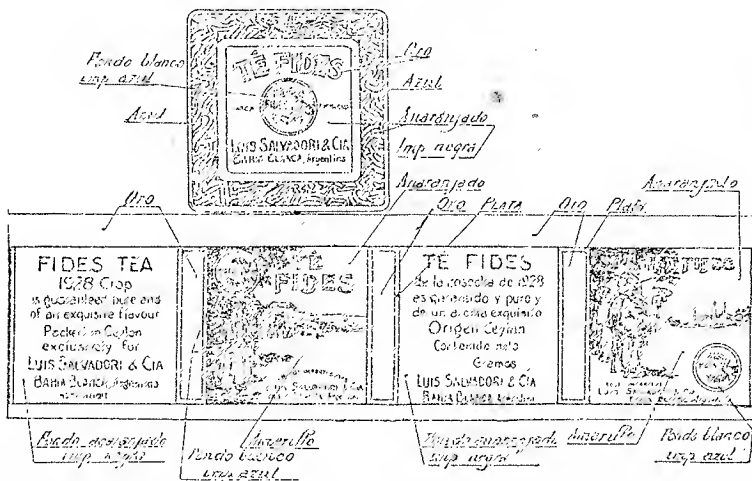 Fondo blanco
imp azul
Oro
Azul
Azul
Anaranjado
Imp negra
TÉ FIDES
LUIS SALVADORI & CIA
BAHIA BLANCA, Argentina
Oro
Anaranjado
Oro
PLATA
Oro
PLATA
Anaranjado
FIDES TEA
1928 Crop
is guaranteed pure and
of an exquisite flavour
Packed in Ceylon
exclusively for
LUIS SALVADORI & CIA
BAHIA BLANCA, Argentina
TÉ
FIDES
TÉ FIDES
de la cosecha de 1928
es garantido y puro y
de un aroma exquisito
Origen Ceylan
Contenido neto
Gramos
LUIS SALVADORI & CÍA
BAHIA BLANCA
TÉ FIDES
Fondo anaranjado
imp negra
Fondo blanco
imp azul
Amarillo
Fondo anaranjado
imp negra
Amarillo
Fondo blanco
imp azul